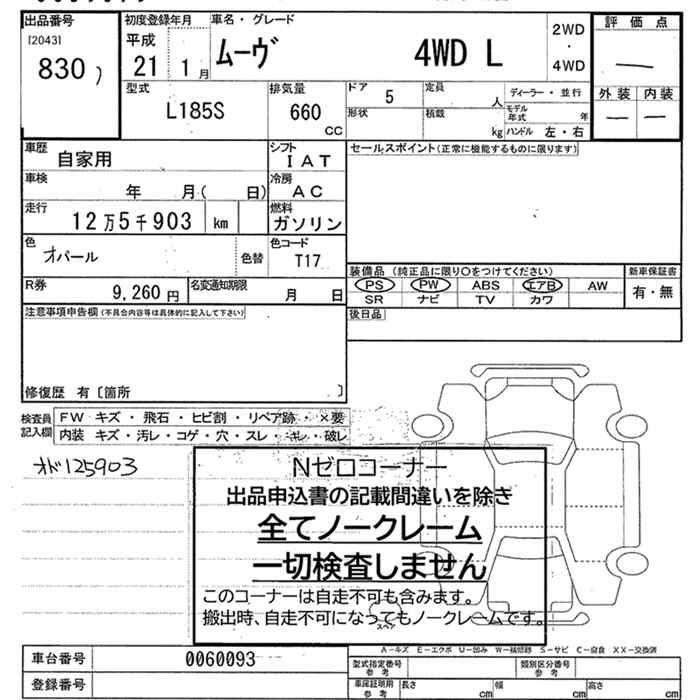 出品番号 初度登録年月 車名・グレード 2WD 評価点
[2043] 平成 ムーヴ 4WD L ・
830) 21 1月 4WD ―
型式 排気量 ドア 5 定員 人 ディーラー・並行 外装 内装
L185S 660 CC 形状 積載 kg モデル年式 年 ― ―
ハンドル 左・右
車歴 自家用 シフト IAT セールスポイント(正常に機能するものに限ります)
車検 年 月( 日) 冷房 AC
走行 12万5千903 km 燃料 ガソリン
色 オパール 色替 色コード T17
装備品(純正品に限り○をつけてください) 新車保証書
R券 9,260円 名変通知期限 月 日 PS PW ABS エアB AW 有・無
SR ナビ TV カワ
注意事項申告欄(不具合内容等は具体的に記入して下さい) 後日品
修復歴 有〔箇所 〕
検査員記入欄 FW キズ・飛石・ヒビ割・リペア跡・×要
内装 キズ・汚レ・コゲ・穴・スレ・キレ・破レ
オド125903
Nゼロコーナー
出品申込書の記載間違いを除き
全てノークレーム
一切検査しません
このコーナーは自走不可も含みます。
搬出時、自走不可になってもノークレームです。
スペア
A-キズ E-エクボ U-凹み W-補修跡 S-サビ C-腐食 XX-交換済
車台番号 0060093 型式指定番号 参考 類別区分番号 参考
登録番号 車庫証明用 参考 長さ cm 幅 cm 高さ cm